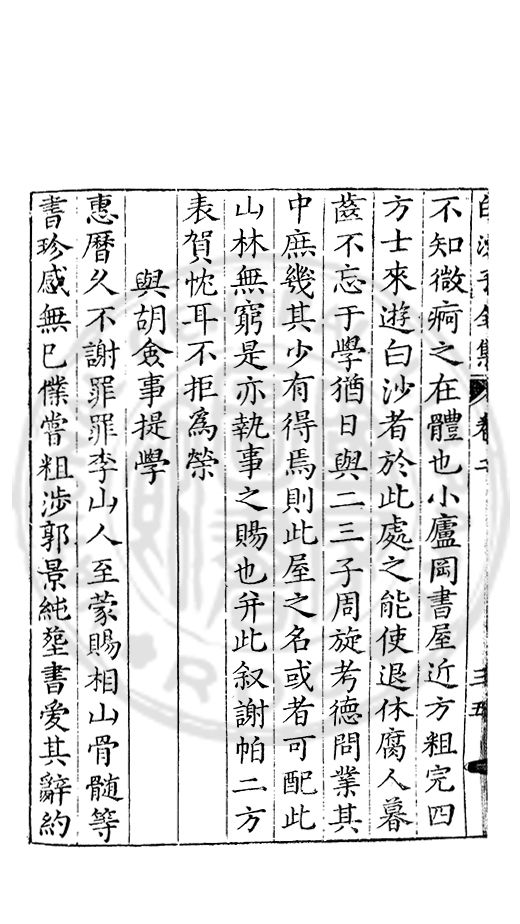 不知微痾之在體也小廬岡書屋近方粗完四
方士來遊白沙者於此處之能使退休腐人暮
齒不忘于學猶日與二三子周旋考德問業其
中庶幾其少有得焉則此屋之名或者可配此
山林無窮是亦執事之賜也并此叙謝帕二方
表賀忱耳不拒爲榮
與胡僉事提學
惠曆久不謝罪罪李山人至蒙賜相山骨髓等
書珍感無已僕嘗粗涉郭景純塟書愛其辭約